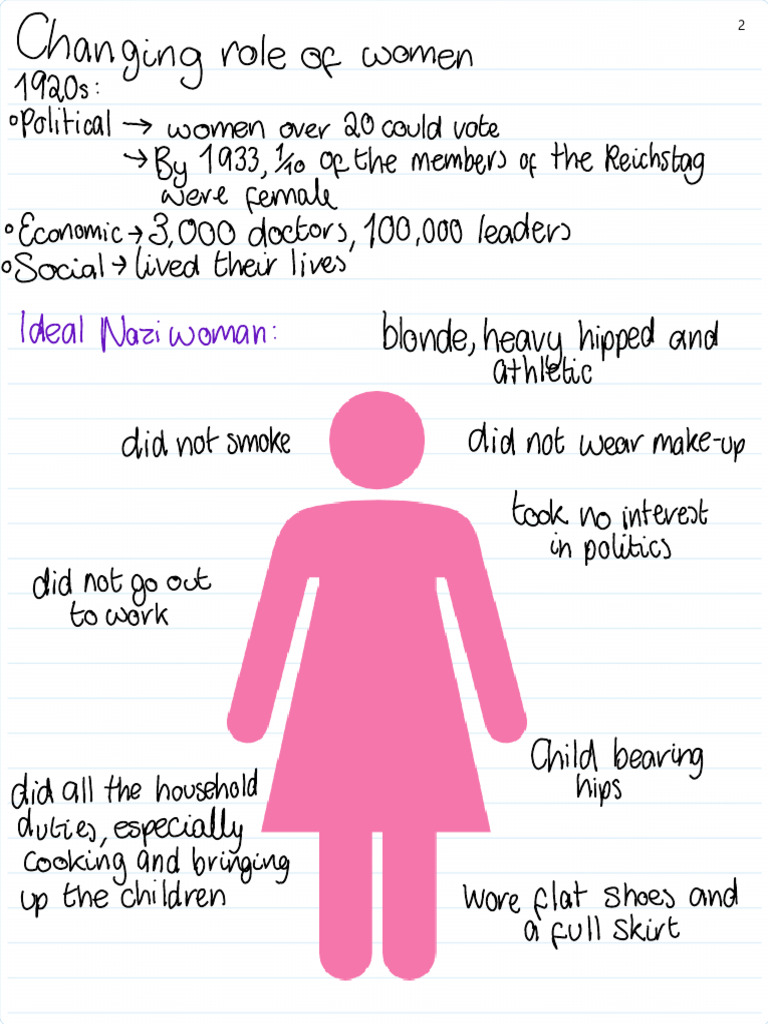 2
Changing role of women
1920s:
Political → women over 20 could vote
→ By 1933, 1/10 of the members of the Reichstag
were female
Economic → 3,000 doctors, 100,000 leaders
Social → lived their lives
Ideal Nazi woman:
blonde, heavy hipped and
athletic
did not smoke
did not wear make-up
took no interest
in politics
did not go out
to work
Child bearing
hips
did all the household
duties, especially
cooking and bringing
up the children
wore flat shoes and
a full skirt